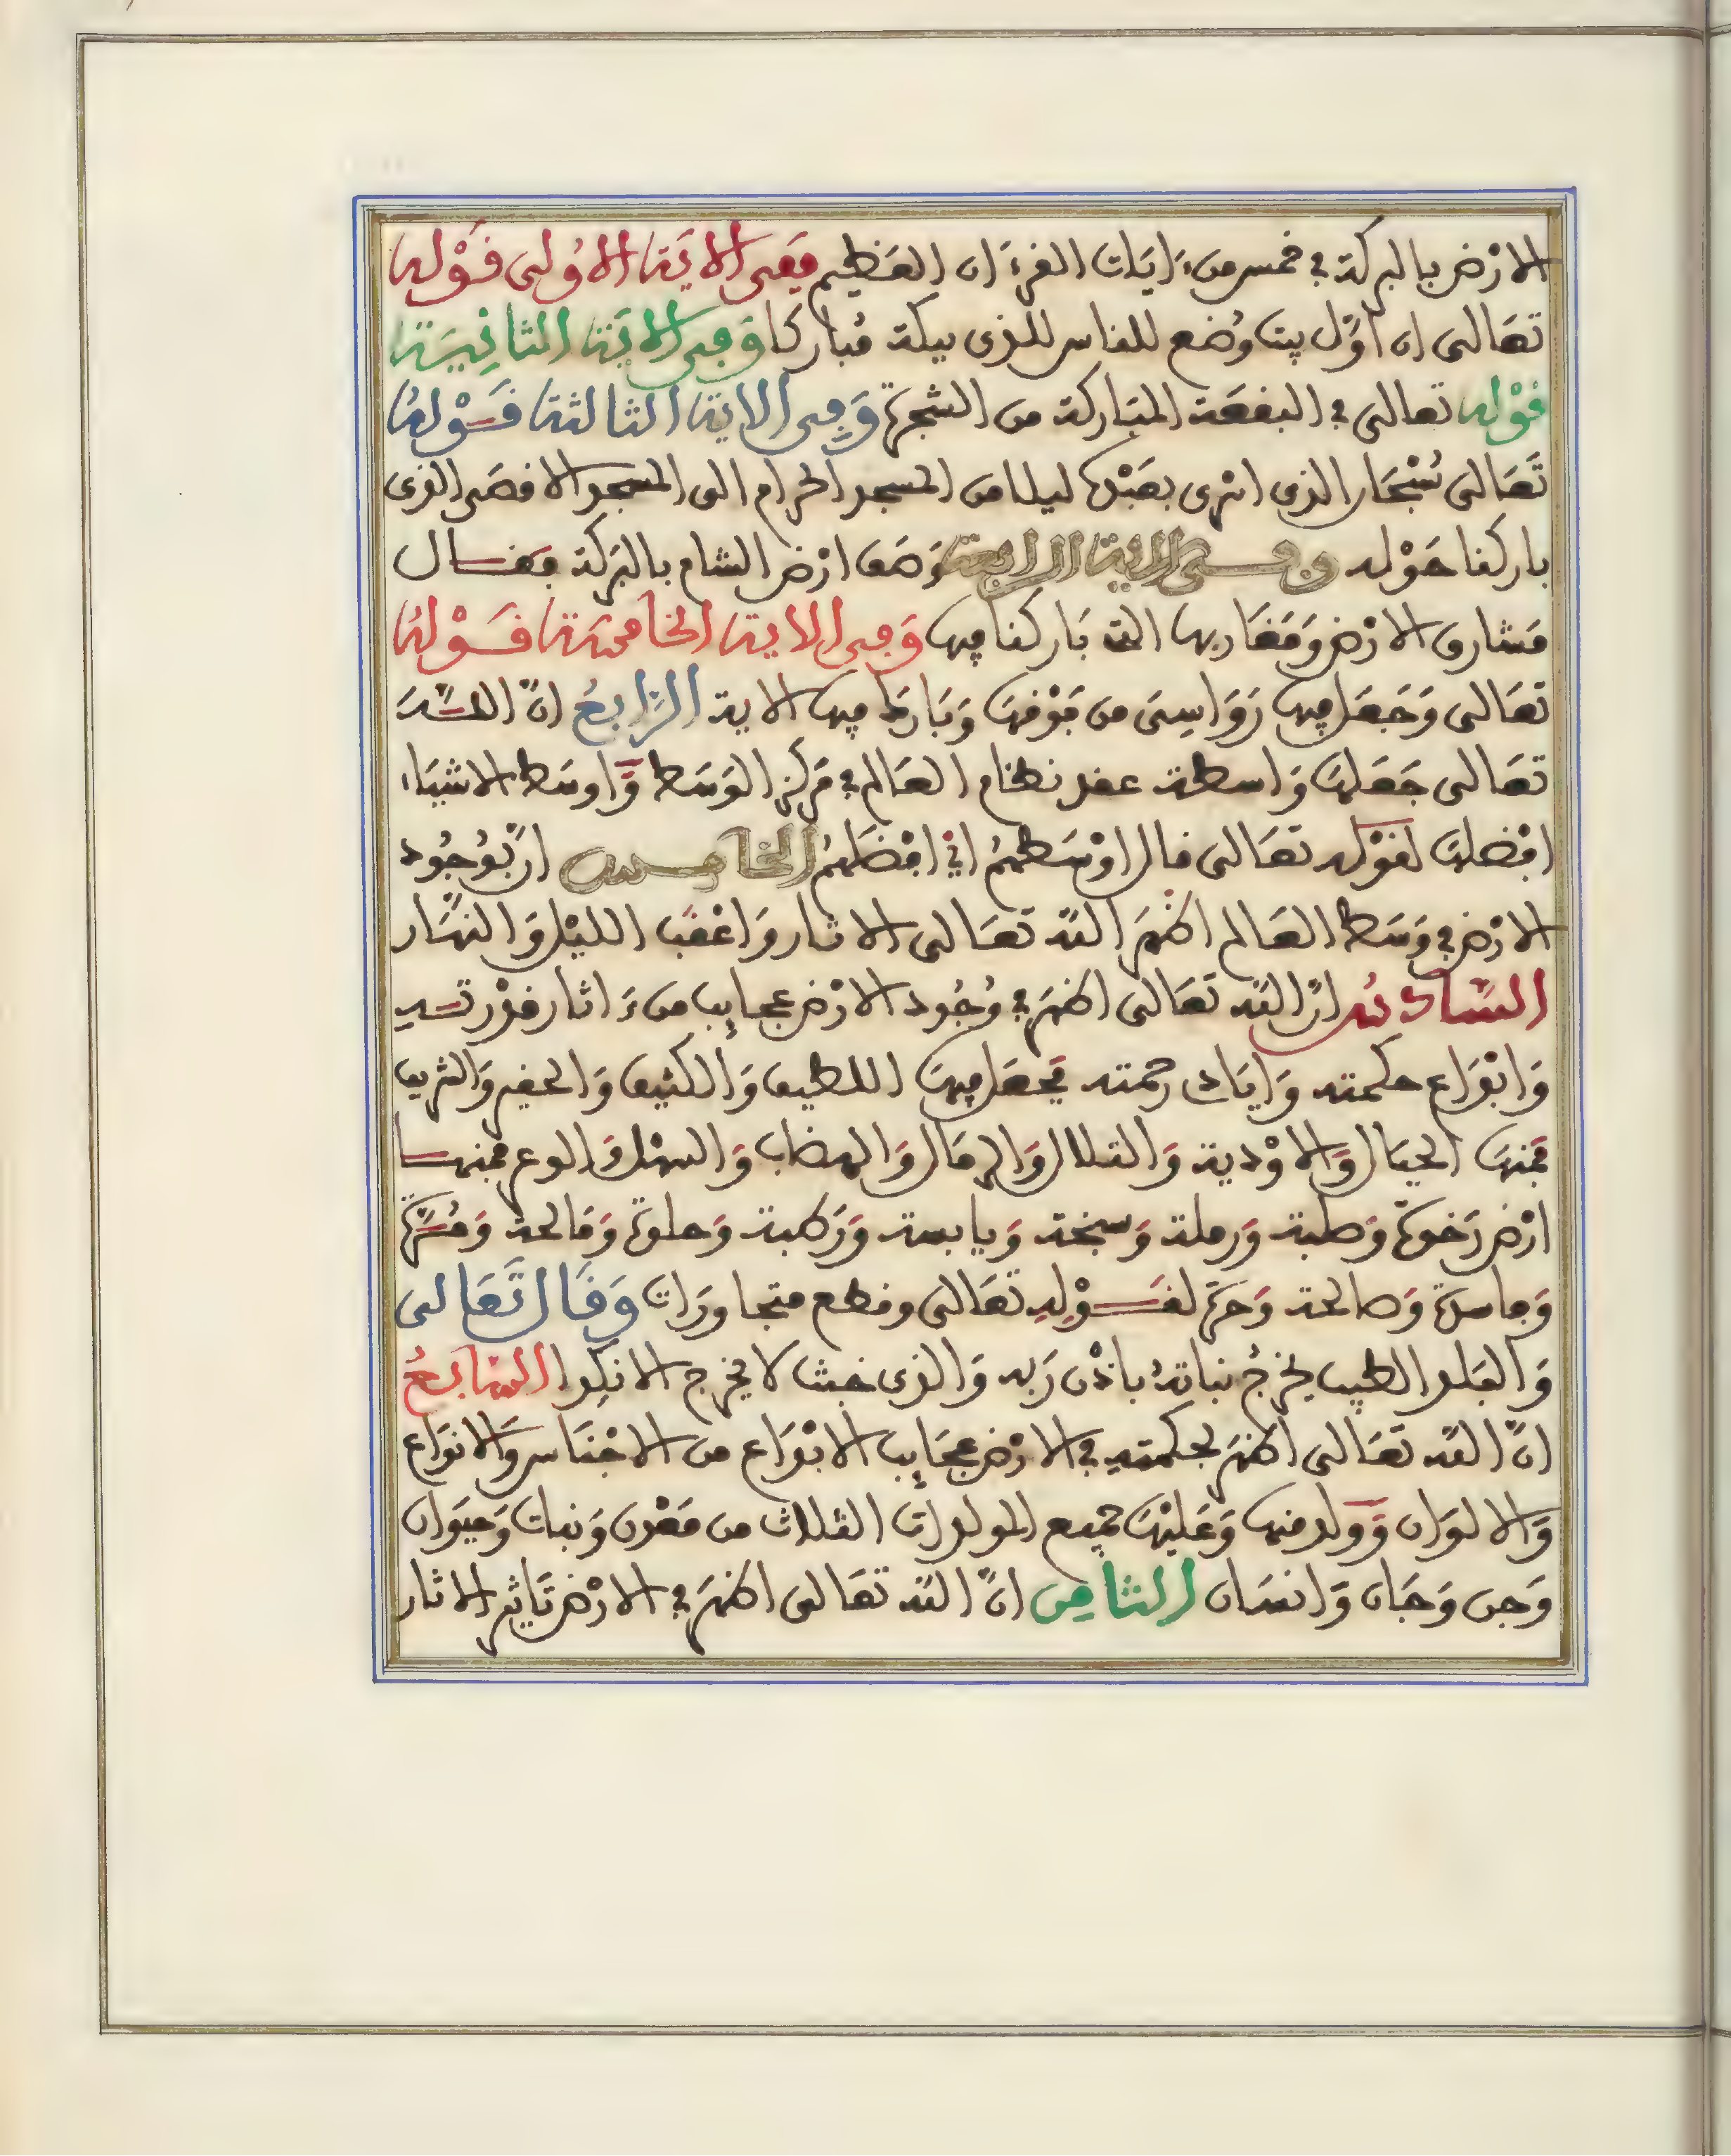 الارْض بالبركة في خمس من ءَايَات القرءَان العَظيم فَفى الايَة الاُولى قَوْله
تعَالى ان اوّل بيت وُضع للناس للذى ببكة مُباركا وَفى الايَة الثانِيَة
قوْله تعالى في البقعَة المبَاركة من الشجرة وَفِى الاية الثالثة قَوْلهُ
تَعَالى سُبْحَان الذى اسْرى بعَبْده ليلا من المسجد الحرام الى المسجد الاقصَى الذى
باركنا حَوْله وفى الاية الرابعة وَصَف ارْض الشام بالبَركة فقال
مَشارق الارْض وَمَغَاربها التى بَاركنا فيها وَفى الاية الخامسَة قَوْلهُ
تعَالى وَجَعَل فيها رَوَاسِىَ من فَوْقهَا وَبَارَك فيها الاية الرَّابعُ انّ اللَّهَ
تعَالى جَعَلهَا وَاسطة عقد نظام العَالم في مَركز الوَسَط وَّاوسَط الاشيَاء
افْضلهَا لقوْله تعَالى قال اوْسَطهُمُ اىْ افْضَلهُمُ الخامس انّ بوُجُود
الارْض في وَسَط العَالم اظهَرَ اللّه تعَالى الاثار وَاعْقبَ الليْل وَالنهَار
السَّادسُ انّ اللّه تعَالى اظهَرَ في وُجُود الارْض عجايب من ءَاثار قدْرتهِ
وَانْوَاع حكمته وَايَات رحمته فجعَل فيهَا اللطيف وَالكثيف وَالحقير وَالشريف
فمنهَا الجبَال وَالاوْدية وَالتلال وَالرمَال وَالهضاب وَالسهْل وَالوعر فمنها
ارْض رَخوة وَصلبة وَرملة وَسبخة وَيابسة وَرَطبة وَحلوة وَمَالحة وَمُرَّة
وَفاسدة وَصالحة وَحرة لقَوْلهِ تعَالى وقطع متجاورَات وَقَالَ تَعَالى
وَالبَلد الطيب يخرُجُ نباتهُ باذْن رَبه وَالذى خبث لا يخرج الا نكِدا السَابِعُ
انّ اللّه تعَالى اظهَرَ بحكمتهِ في الارْض عجَايب الانْوَاع من الاجْنَاس وَالانوَاع
وَالالوَان وَّولد منها وَعَليْهَا جميع المولدات الثلاث من مَعْدن وَنبات وَحيَوان
وَجن وَجَان وَانسَان الثامِن انّ اللّه تعَالى اظهَرَ في الارْض تَاثير الاثار